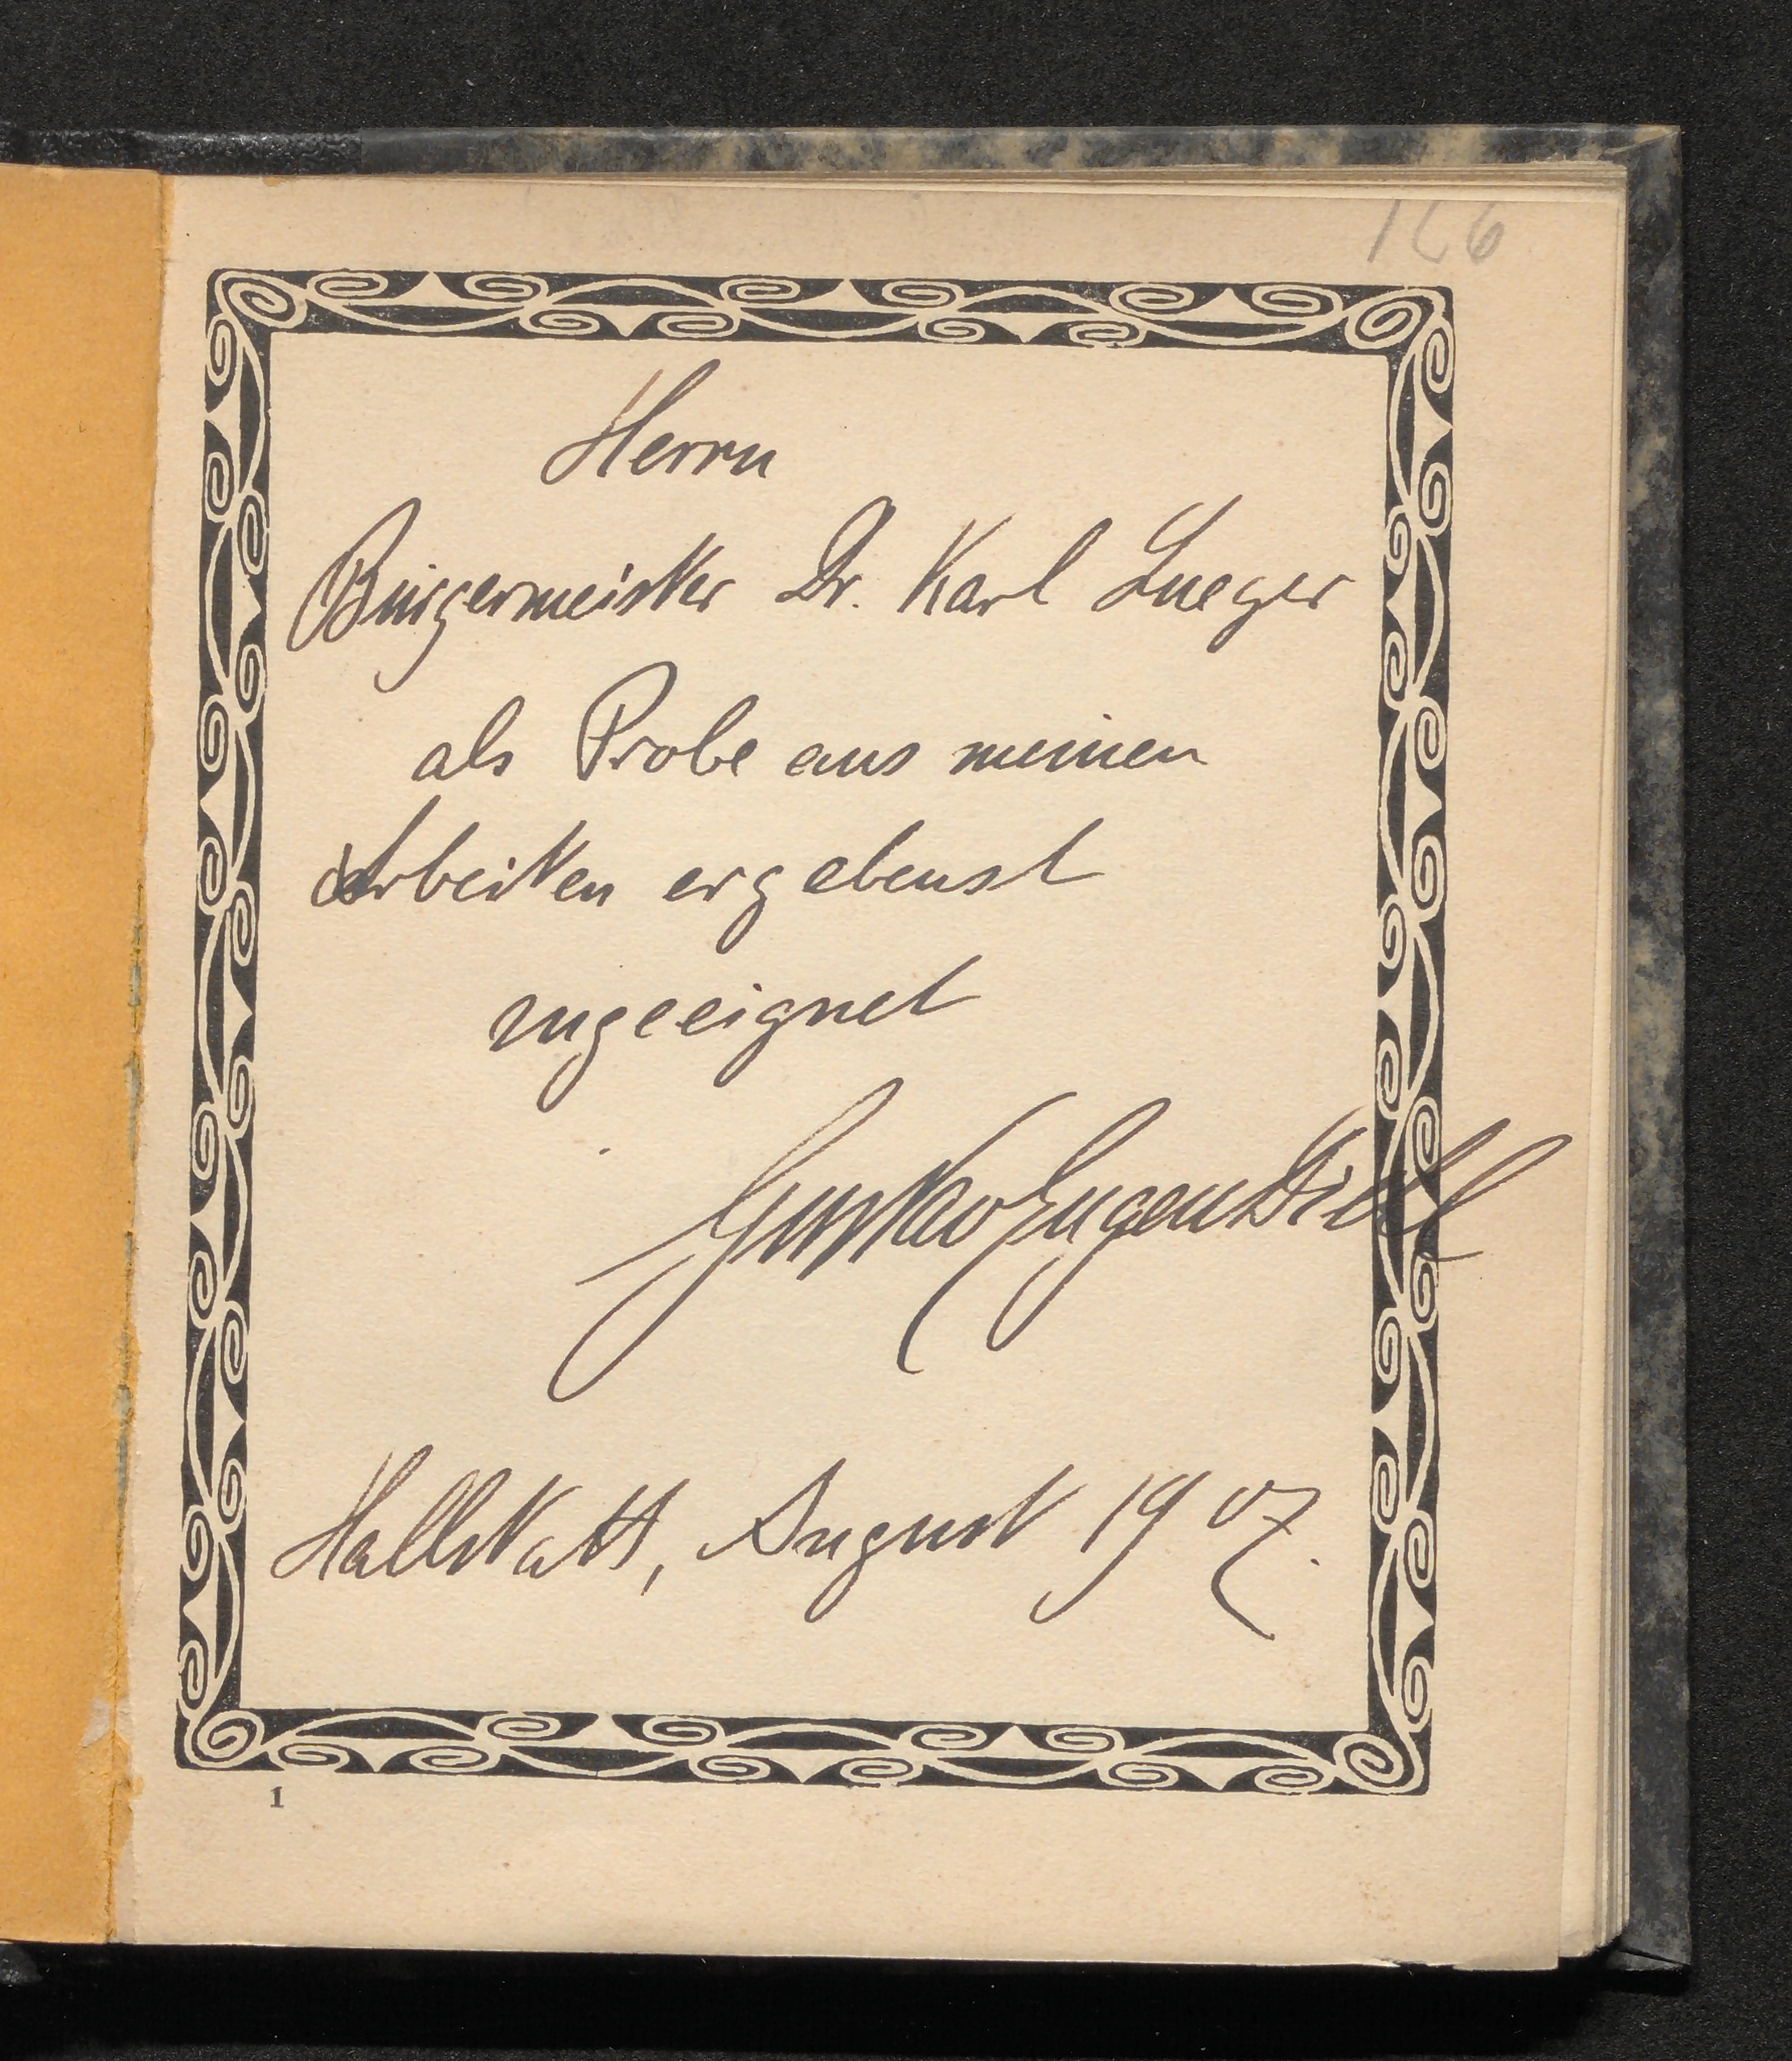 126
Herrn
Bürgermeister Dr. Karl Lueger
als Probe aus meinen
Arbeiten ergebenst
zugeeignet
Gustav Eugen Diehl
Hallstatt, August 1907.
1